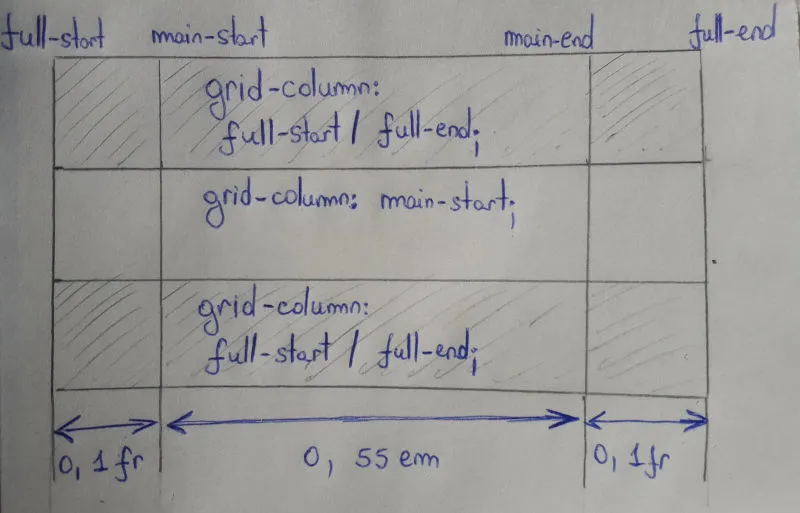 full-start main-start main-end full-end
grid-column:
full-start / full-end;
grid-column: main-start;
grid-column:
full-start / full-end;
0, 1fr 0, 55em 0, 1fr